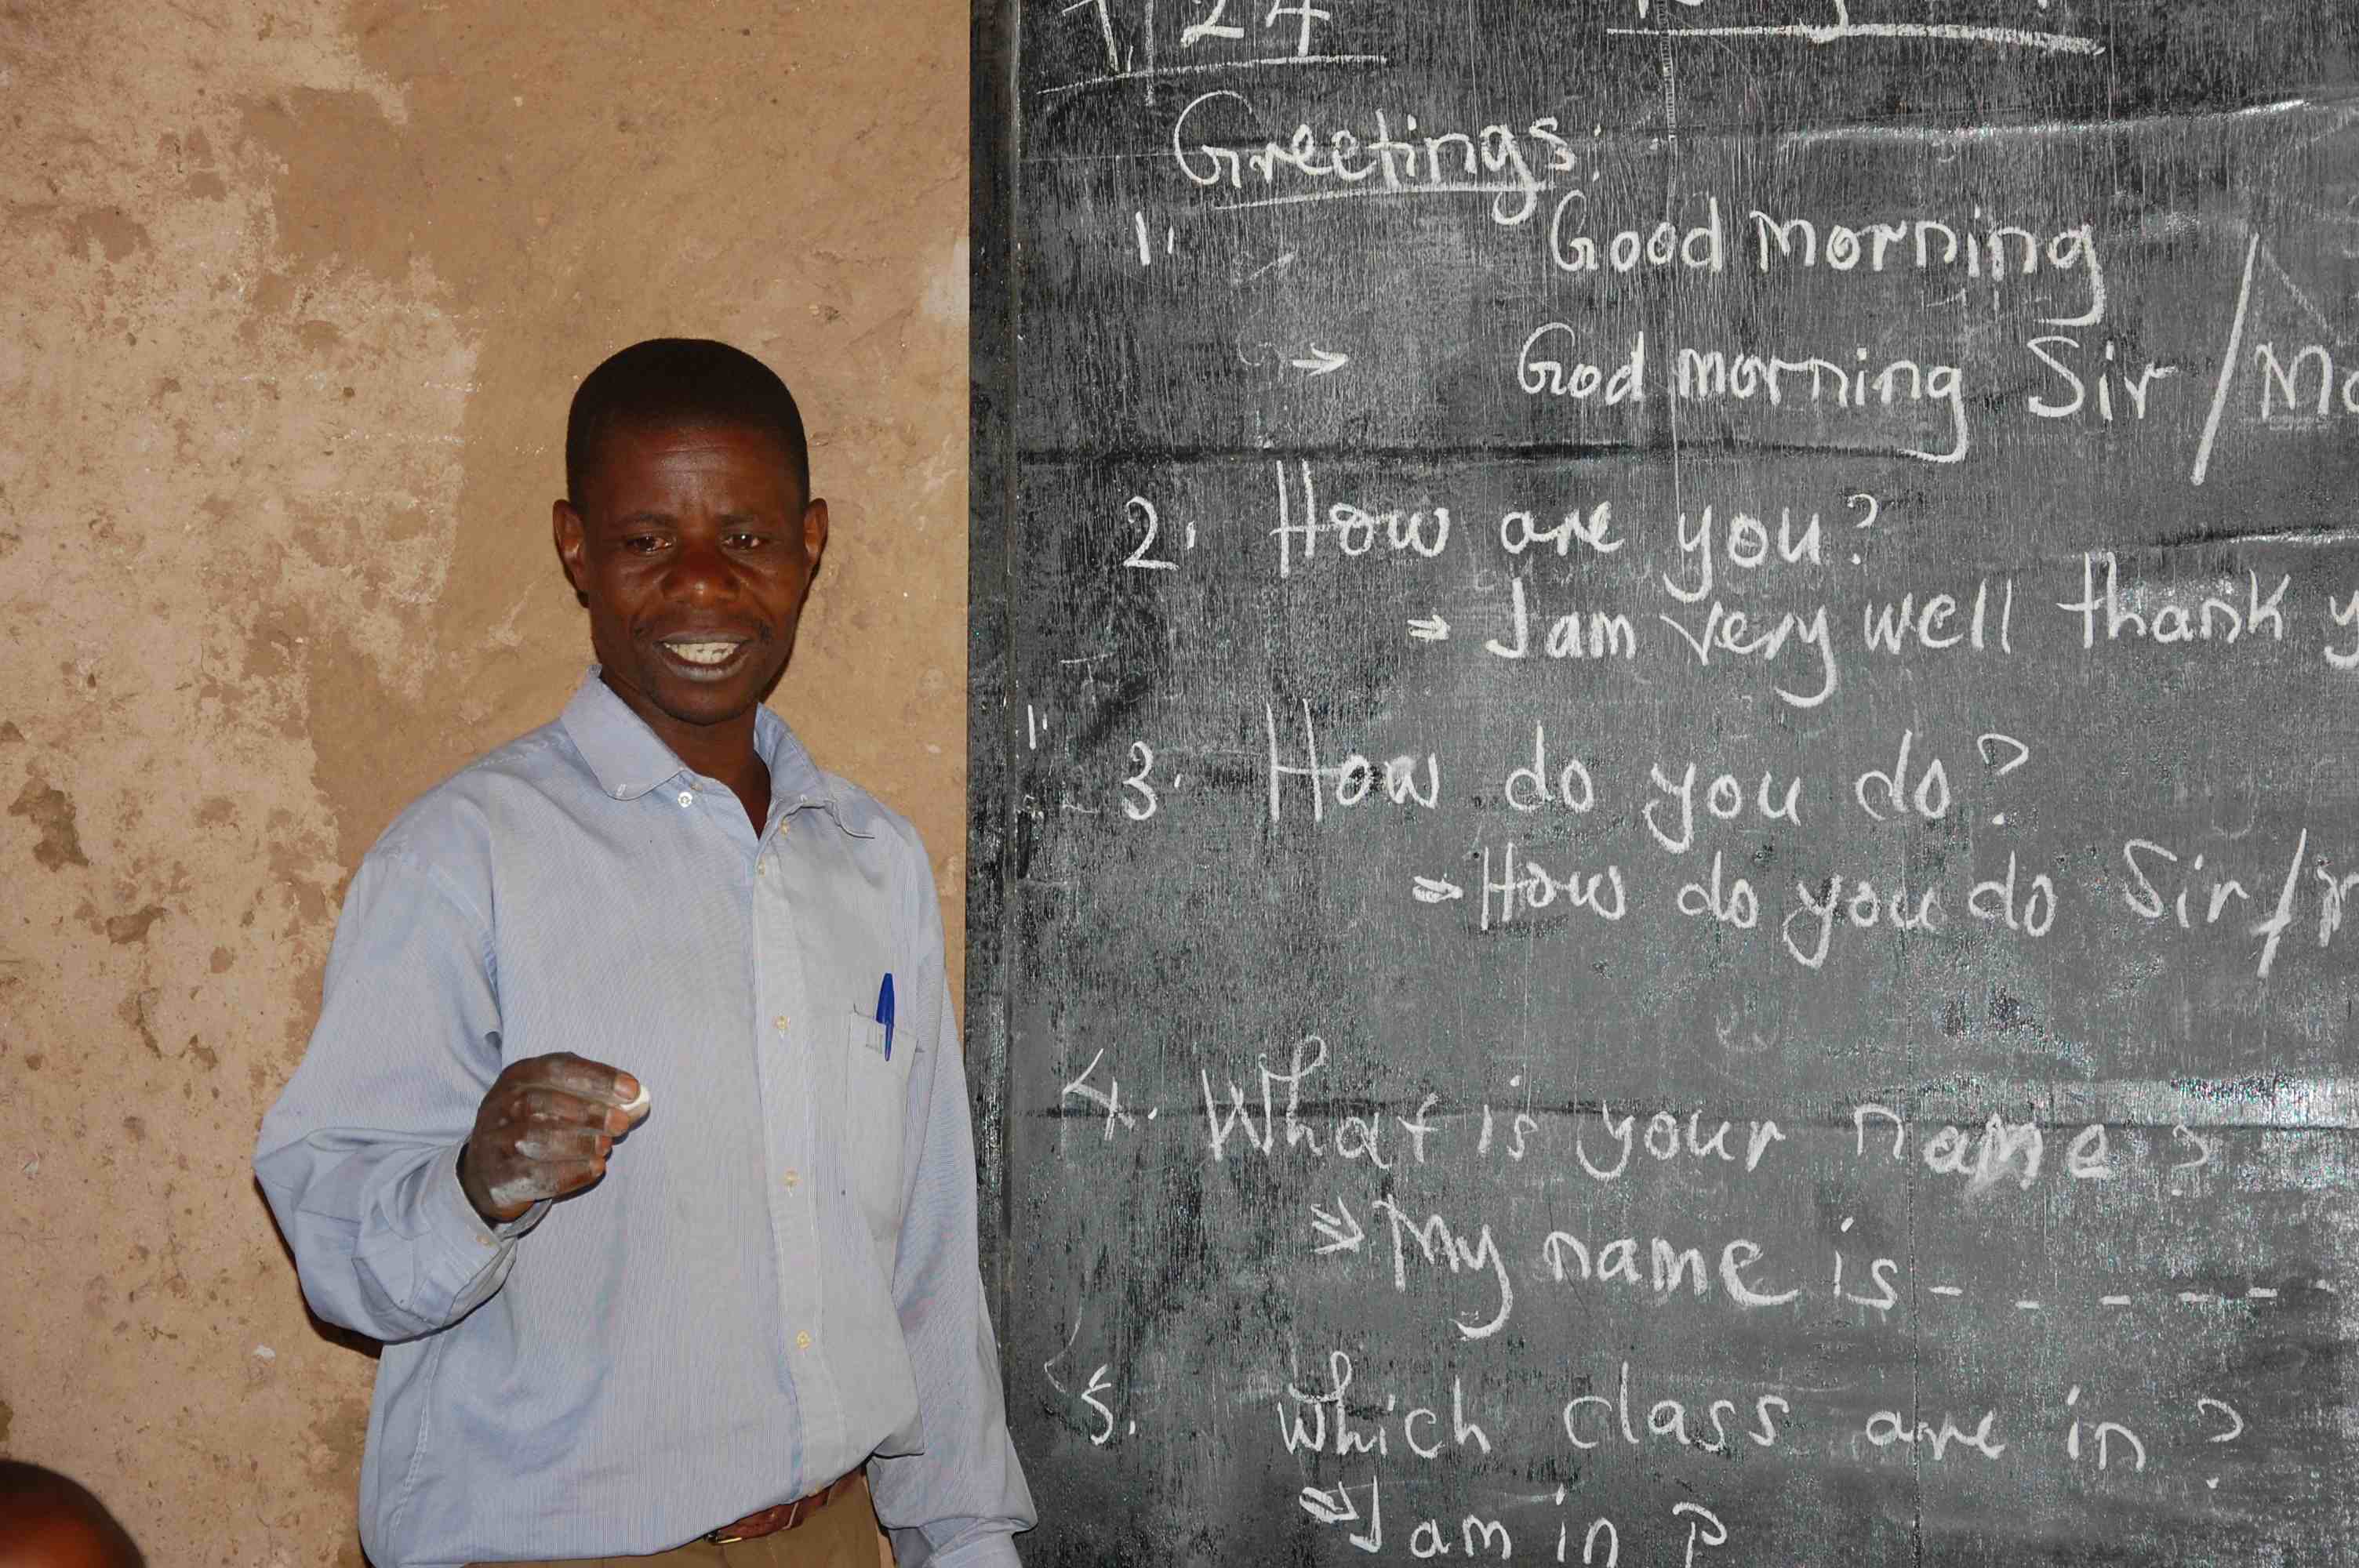 24
Greetings:
1. Good morning
→ God morning Sir /
2. How are you?
⇒ I am very well thank
3. How do you do?
⇒ How do you do Sir /
4. What is your name?
⇒ My name is - - - - - -
5. Which class are in?
⇒ I am in P